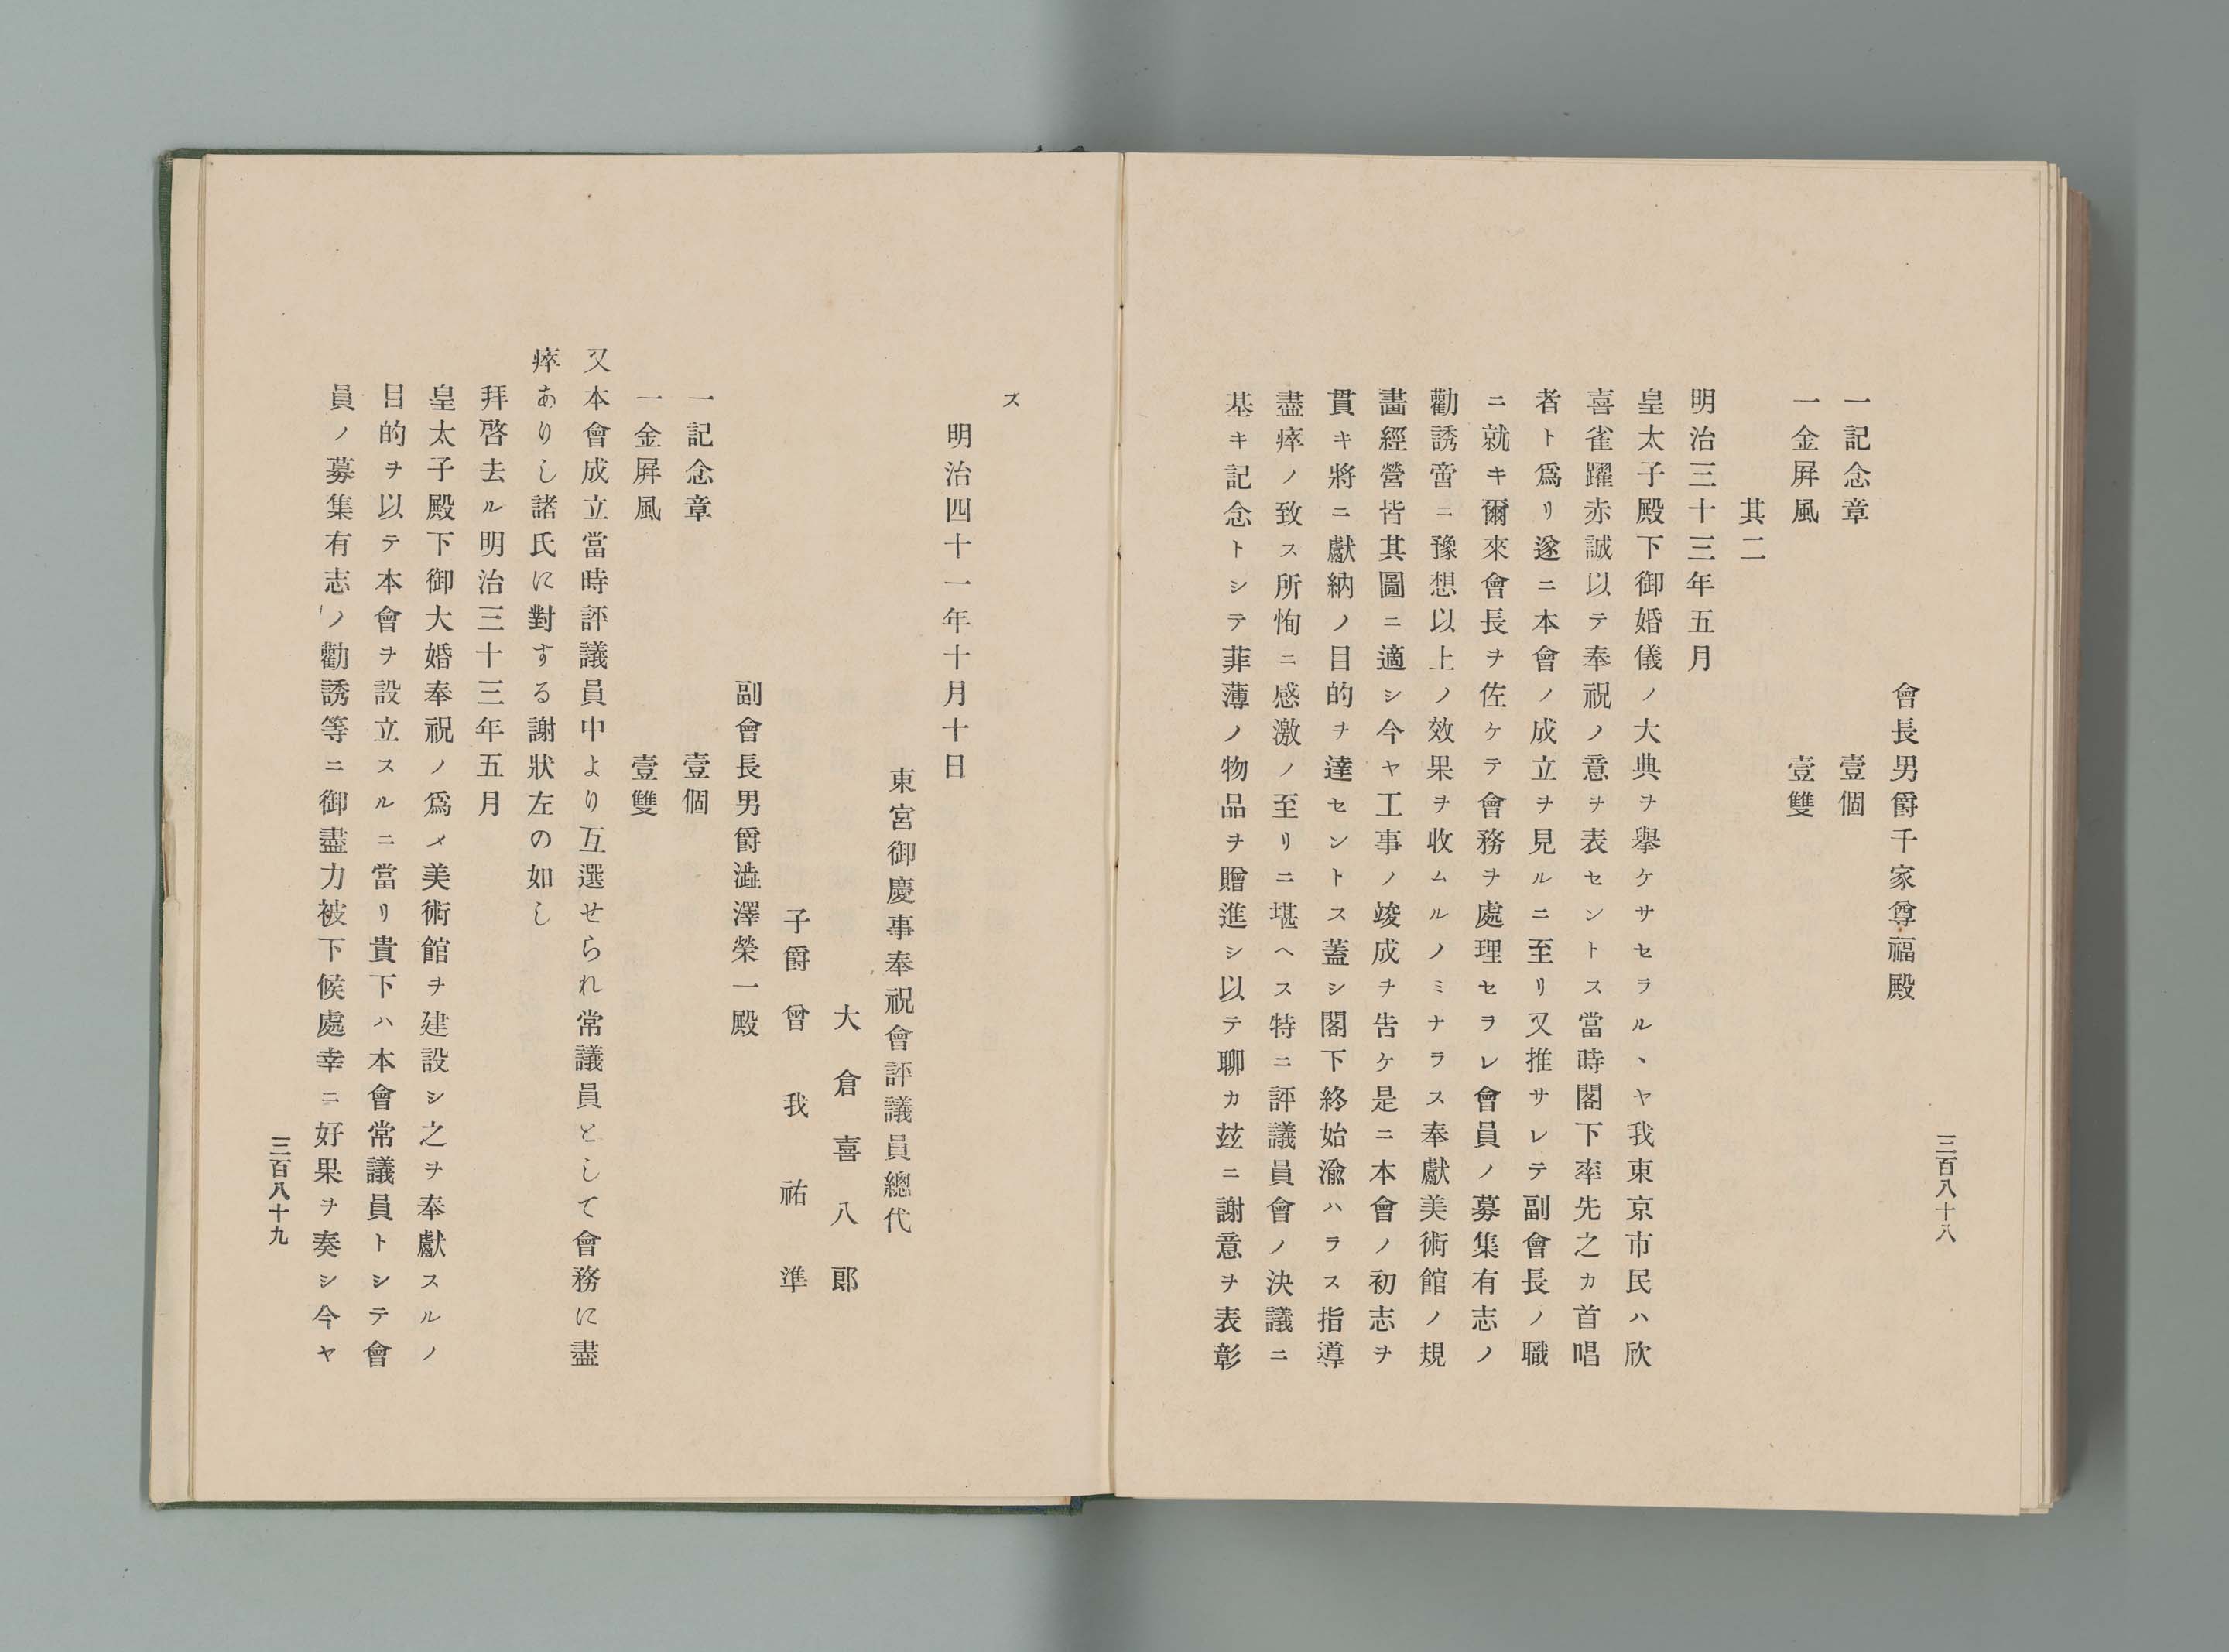 三百八十八
會長男爵千家尊福殿
一記念章　壹個
一金屛風　壹雙
其二
明治三十三年五月
皇太子殿下御婚儀ノ大典ヲ擧ケサセラル、ヤ我東京市民ハ欣
喜雀躍赤誠以テ奉祝ノ意ヲ表セントス當時閣下率先之カ首唱
者ト爲リ遂ニ本會ノ成立ヲ見ルニ至リ又推サレテ副會長ノ職
ニ就キ爾來會長ヲ佐ケテ會務ヲ處理セラレ會員ノ募集有志ノ
勸誘啻ニ豫想以上ノ效果ヲ收ムルノミナラス奉獻美術館ノ規
畫經營皆其圖ニ適シ今ヤ工事ノ竣成ヲ告ケ是ニ本會ノ初志ヲ
貫キ將ニ獻納ノ目的ヲ達セントス蓋シ閣下終始渝ハラス指導
盡瘁ノ致ス所恂ニ感激ノ至リニ堪ヘス特ニ評議員會ノ決議ニ
基キ記念トシテ菲薄ノ物品ヲ贈進シ以テ聊カ玆ニ謝意ヲ表彰
ス
明治四十一年十月十日
東宮御慶事奉祝會評議員總代
大倉喜八郞
子爵曾我祐準
副會長男爵澁澤榮一殿
一記念章　壹個
一金屛風　壹雙
又本會成立當時評議員中より互選せられ常議員として會務に盡
瘁ありし諸氏に對する謝狀左の如し
拜啓去ル明治三十三年五月
皇太子殿下御大婚奉祝ノ爲メ美術館ヲ建設シ之ヲ奉獻スルノ
目的ヲ以テ本會ヲ設立スルニ當リ貴下ハ本會常議員トシテ會
員ノ募集有志ノ勸誘等ニ御盡力被下候處幸ニ好果ヲ奏シ今ヤ
三百八十九